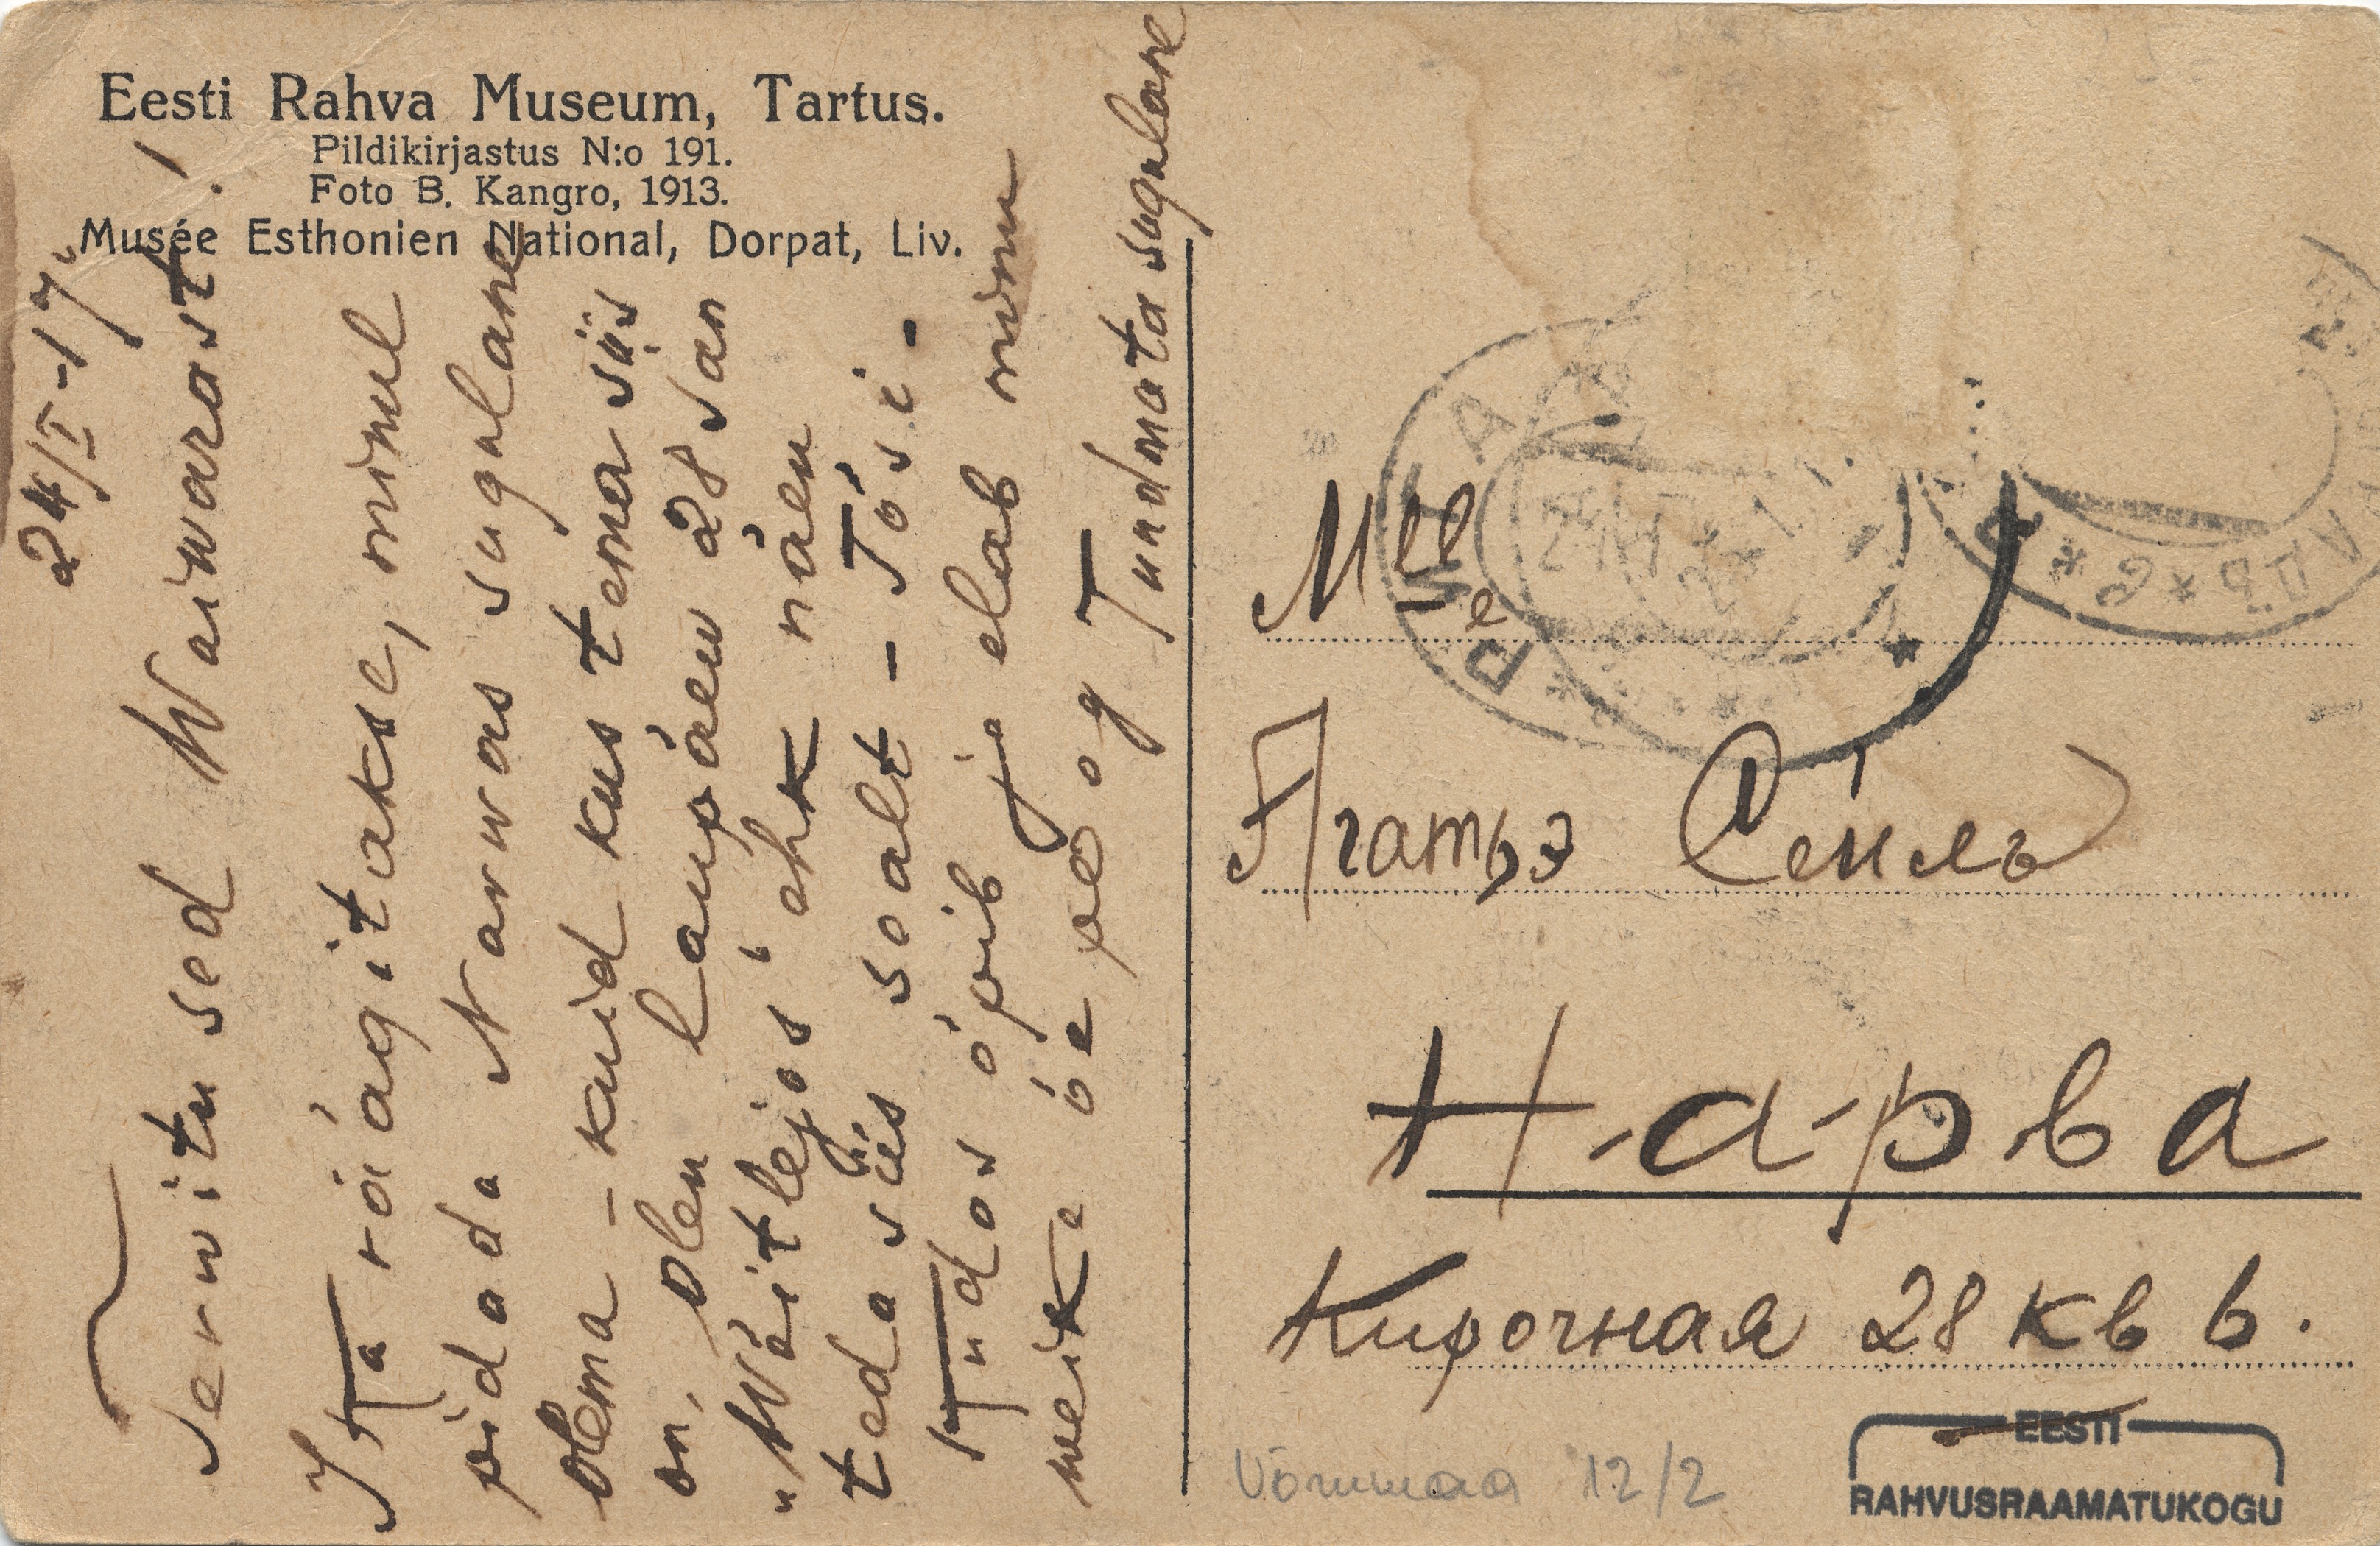 Eesti Rahva Museum, Tartus.
Pildikirjastus N:o 191.
Foto B. Kangro, 1913.
Musée Esthonien National, Dorpat, Liv.
24/I-17.
Terwitused Waiwarast!
räägitakse, minul
pidada Narwas sugulane
olema - kuid kus tema siis
on, olen laupäew 28 jan
"Wäitlejas" ehk näen
teda siis sealt - Tõsi -
õpib ja elab minu
weike õepoeg Tundmata sugulane
Mlle
Агатъэ Семель
Нарва
Кирочная 28 кв 6.
Võrumaa 12/2
EESTI
RAHVUSRAAMATUKOGU